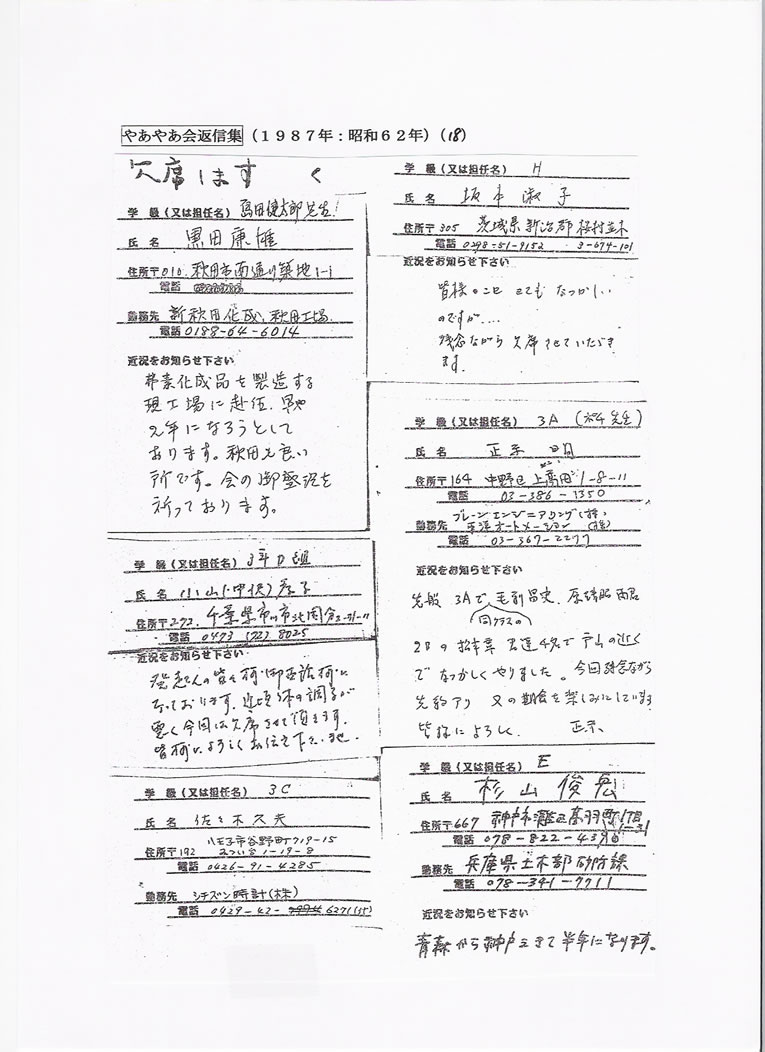 やあやあ会返信集（１９８７年：昭和６２年）（18）
欠席します
学 級（又は担任名）島田健太郎先生
氏 名 黒田康雄
住所〒010 秋田市南通り築地1-1
電話
勤務先 新秋田化成 秋田工場
電話 0188-64-6014
近況をお知らせ下さい
弗素化成品を製造する
現工場に赴任、早や
2年になろうとして
おります。秋田も良い
所です。会の御盛況を
祈っております。
学 級（又は担任名）3年D組
氏 名 小山(中俣)
住所〒272 千葉県市川市北国分2-31-11
電話 0473 (72) 8025
近況をお知らせ下さい
発起人の皆様
なっております。近頃体の調子が
悪く今回は欠席させて頂きます。
皆様によろしくお伝え下さいませ。
学 級（又は担任名）3C
氏 名 佐々木久夫
八王子市谷野町719-15
住所〒192 みつい台1-19-8
電話 0426-91-4285
勤務先 シチズン時計(株)
電話 0429-42- 6271(15)
学 級（又は担任名）H
氏 名 坂本淑子
住所〒305 茨城県新治郡桜村並木
電話 0298-51-9152 3-674-101
近況をお知らせ下さい
皆様のこと とてもなつかしい
のですが....
残念ながら欠席させていただき
ます.
学 級（又は担任名）3A （ 先生）
氏 名 正 明
住所〒164 中野区上高田1-8-11
電話 03-386-1350
ブレーンエンジニアリング(株)
勤務先 オートメーション(株)
電話 03-367-2277
近況をお知らせ下さい
先般 3Aで 毛利昌史、 両君
同クラスの
2日の 君達4名で の近く
で なつかしくやりました。今回残念ながら
先約アリ 又の期会を楽しみにしています
皆様によろしく
学 級（又は担任名）E
氏 名 杉山俊宏
住所〒667 神戸市灘区高羽町
電話 078-822-4396
勤務先 兵庫県土木部砂防課
電話 078-341-7711
近況をお知らせ下さい
青森から神戸にきて半年になります。